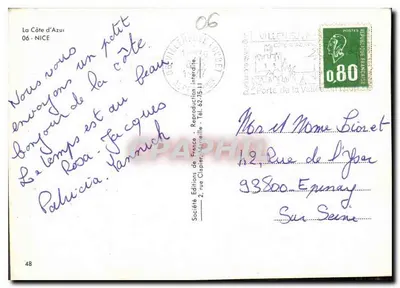 La Côte d'Azur
06 - NICE
06
Nous vous
envoyons un petit
bonjour de la côte.
Le temps est au beau
Rosa. Jacques
Patricia. Yannick
Société Editions de France - Reproduction interdite
2, rue Clapier, Marseille - Tél. 62-75-11
POSTES
0,80
Mor et Mme
12, Rue de l'Yser
93800 - Epinay
Sur Seine
48